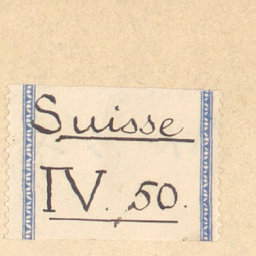 Suisse
IV. 50.